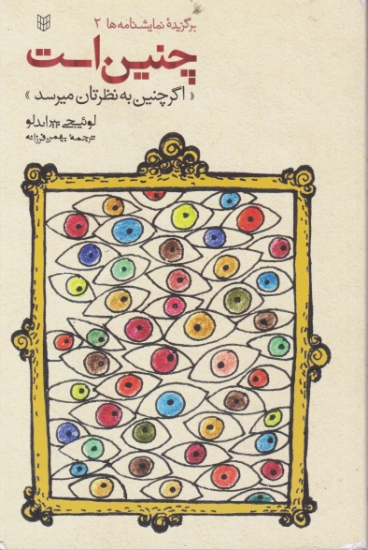 برگزیدهٔ نمایشنامه‌ها ۲
چنین است
« اگر چنین به نظرتان میرسد »
لوئیجی پیراندلو
ترجمهٔ بهمن فرزانه